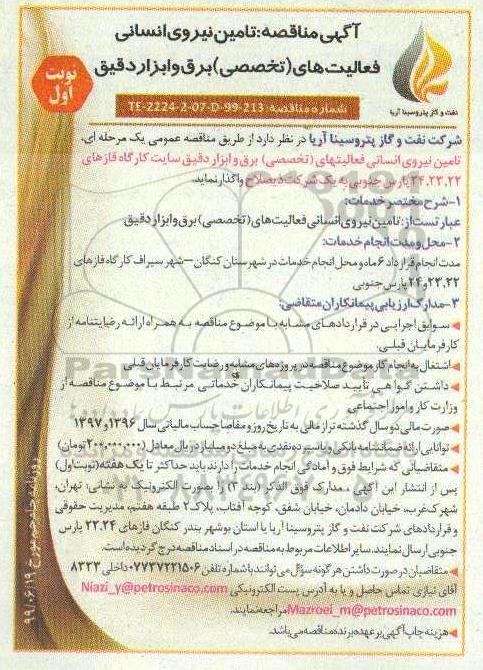 آگهی مناقصه: تامین نیروی انسانی
فعالیت های (تخصصی) برق و ابزار دقیق
نوبت
اول
نفت و گاز پتروسینا آریا
شماره مناقصه: TE-2224-2-07-D-99-213
شرکت نفت و گاز پتروسینا آریا در نظر دارد از طریق مناقصه عمومی یک مرحله ای،
تامین نیروی انسانی فعالیتهای (تخصصی) برق و ابزار دقیق سایت کارگاه فازهای
۲۴،۲۳،۲۲ پارس جنوبی به یک شرکت ذیصلاح واگذار نماید.
۱-شرح مختصر خدمات:
عبارتست از: تامین نیروی انسانی فعالیت های (تخصصی) برق و ابزار دقیق
۲-محل و مدت انجام خدمات:
مدت انجام قرارداد ۶ ماه و محل انجام خدمات در شهرستان کنگان – شهر سیراف کارگاه فازهای
۲۳،۲۲ و ۲۴ پارس جنوبی
۳-مدارک ارزیابی پیمانکاران متقاضی:
سوابق اجرایی در قراردادهای مشابه با موضوع مناقصه به همراه ارائه رضایتنامه از
کارفرمایان قبلی.
اشتغال به انجام کار موضوع مناقصه در پروژه های مشابه و رضایت کارفرمایان قبلی
داشتن گواهی تأیید صلاحیت پیمانکاران خدماتی مرتبط با موضوع مناقصه از
وزارت کار و امور اجتماعی
صورت مالی دو سال گذشته تراز مالی به تاریخ روز و مفاصا حساب مالیاتی سال ۱۳۹۶ و ۱۳۹۷
توانایی ارائه ضمانتنامه بانکی و یا سپرده نقدی به مبلغ دو میلیارد ریال معادل (۲۰۰،۰۰۰،۰۰۰ تومان)
متقاضیانی که شرایط فوق و آمادگی انجام خدمات را دارند باید حداکثر تا یک هفته (نوبت اول)
پس از انتشار این آگهی، مدارک فوق الذکر (بند ۳) را بصورت الکترونیک به نشانی: تهران،
شهرک غرب، خیابان دادمان، خیابان شفق، کوچه آفتاب، پلاک ۲ طبقه هفتم، مدیریت حقوقی
و قراردادهای شرکت نفت و گاز پتروسینا آریا یا استان بوشهر بندر کنگان فازهای ۲۲،۲۴ پارس
جنوبی ارسال نمایند. سایر اطلاعات مربوط به مناقصه در اسناد مناقصه درج گردیده است.
متقاضیان در صورت داشتن هر گونه سؤال می توانند با شماره تلفن ۰۷۷۳۷۲۲۱۵۰۶ داخلی ۸۳۳۳
آقای نیازی تماس حاصل و یا به آدرس پست الکترونیکی Niazi_y@petrosinaco.com
Mazroei_m@petrosinaco.com مراجعه نمایند.
هزینه چاپ آگهی بر عهده برنده مناقصه می باشد.
روزنامه جام جم مورخ ۹۹/۰۶/۱۹